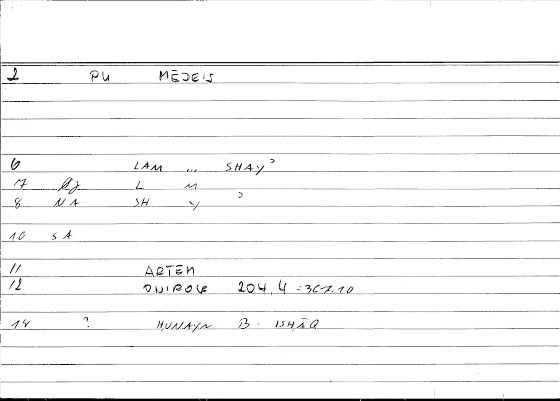 2 PU MĒJEIS
6 LAM ... SHAYʾ
7 L M
8 NA SH Y ʾ
10 SA
11 ARTEM
12 ONIROK 204,4 = 367.10
14 ? HUNAYN B. ISHĀQ